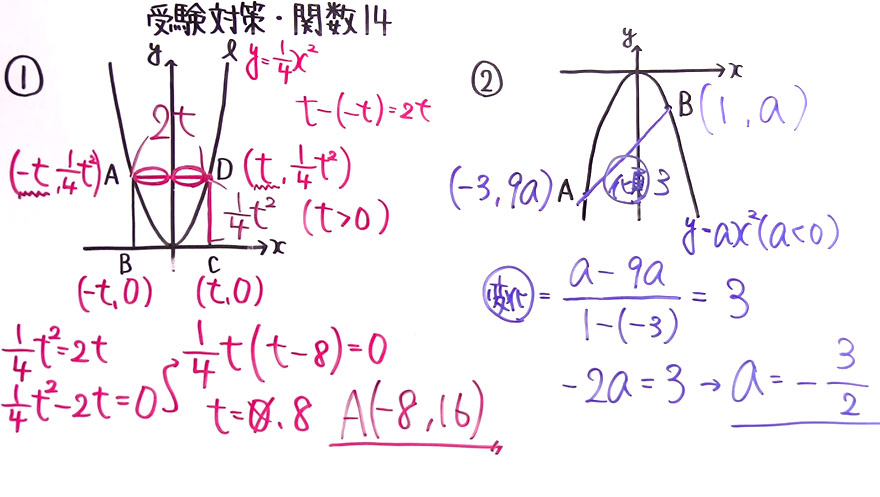 受験対策・関数14
①
y
l
y=1/4x²
t-(-t)=2t
2t
(-t,1/4t²)
A
D
(t,1/4t²)
1/4t²
(t>0)
x
B
C
(-t,0)
(t,0)
1/4t²=2t
1/4t²-2t=0
1/4t(t-8)=0
t=0.8
A(-8,16)
②
y
x
B(1,a)
(-3,9a)
A
傾
3
y=ax²(a<0)
変化
=
a-9a/1-(-3)
=3
-2a=3→a=-3/2